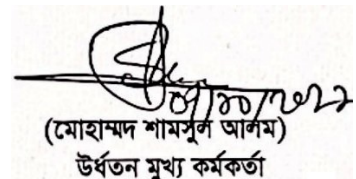 (মোহাম্মদ শামসুল আলম)
উর্ধতন মুখ্য কর্মকর্তা